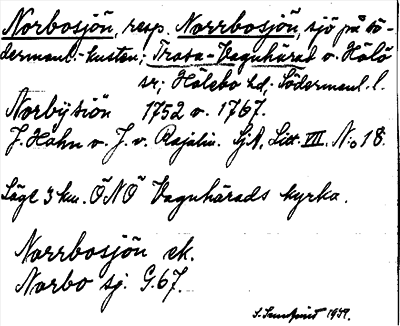 Norbosjön, resp. Norrbosjön, sjö på sö-
dermanl.-kusten; Trosa-Vagnhärad o. Hölö
sr; Hölebo hd. Södermanl. l.
Norbÿ siön 1752 o. 1767.
J. Hahn o. J. v. Rajalin. SjA, Litt. VII. N:o 18.
Läge 3 km. ÖNÖ Vagnhärads kyrka.
Norrbosjön ek.
Norbo sj. G. 67.
1939.